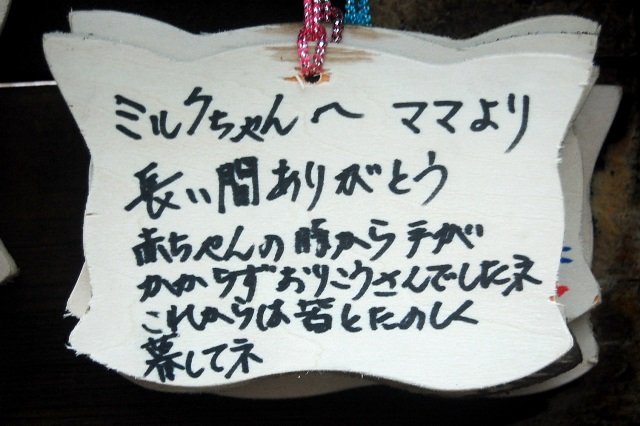 ミルクちゃんへ ママより
長い間ありがとう
赤ちゃんの時から手が
かからずおりこうさんでしたネ
これからは苦とたのしく
暮してネ